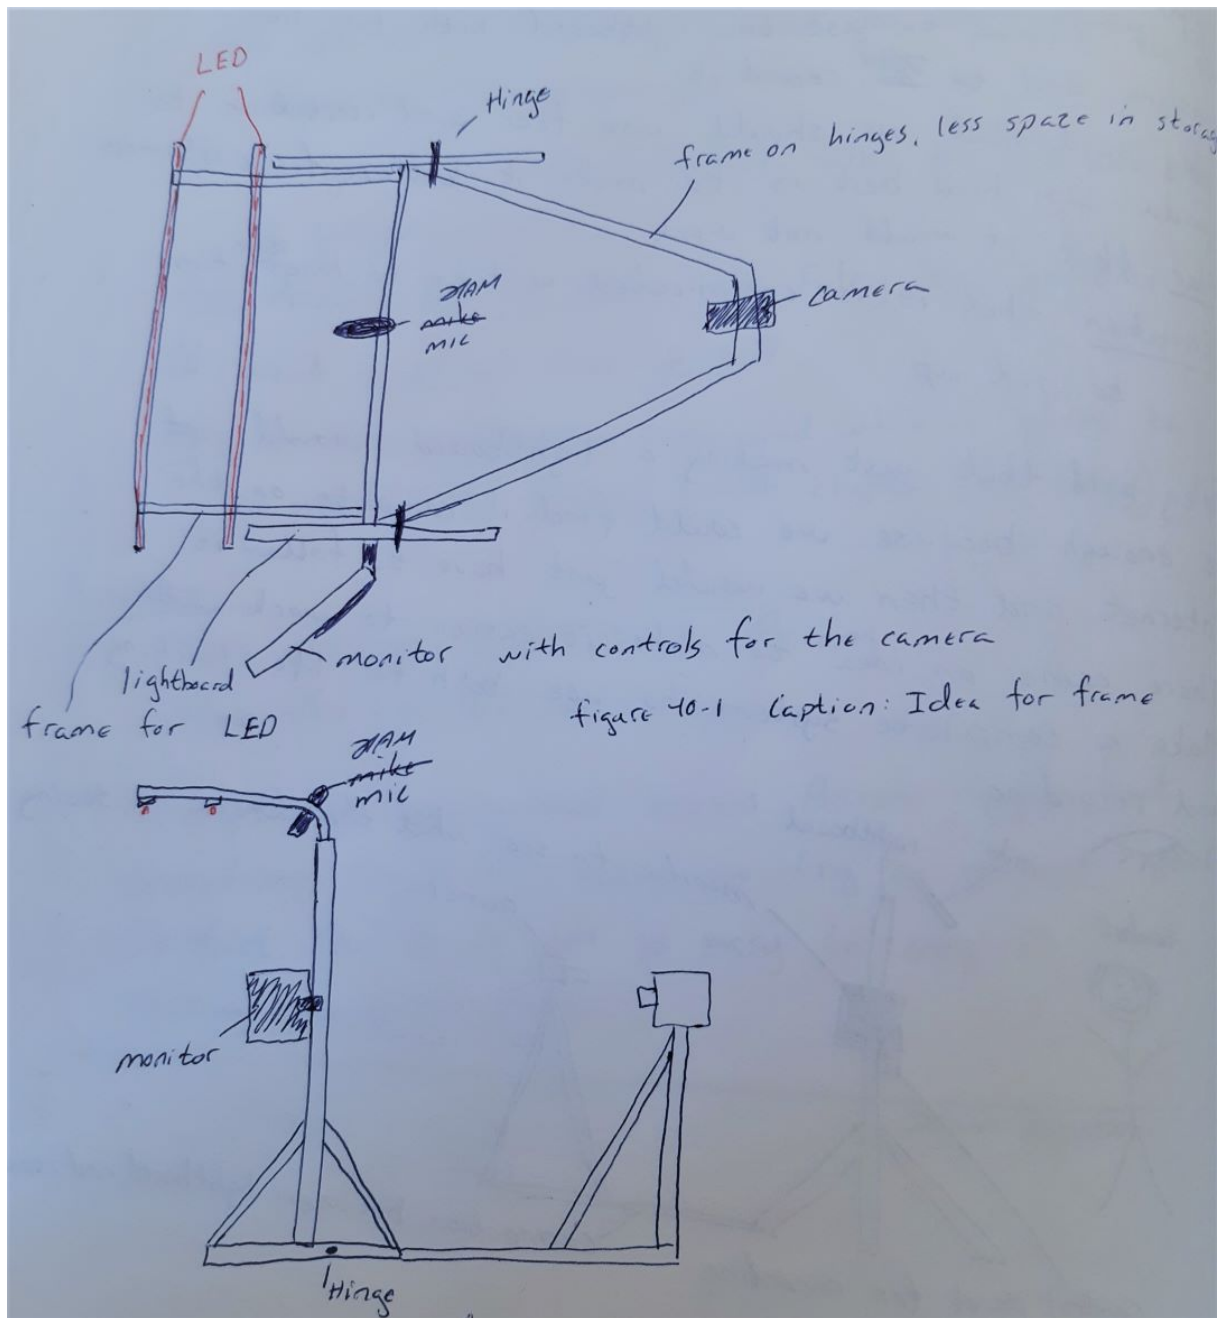 LED
Hinge
frame on hinges, less space in storag
camera
mike
mic
lightboard
monitor with controls for the camera
frame for LED
figure 40-1 Caption: Idea for frame
mike
mic
monitor
Hinge